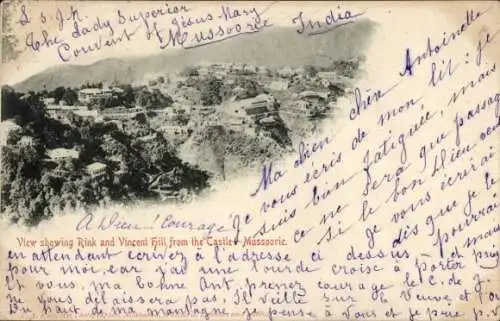 L.S.J.C
The Lady Superior
Convent of Jesus Mary
Mussoorie India
Ma bien chère Antoinette,
Je vous écris de mon lit: je
suis bien fatiguée, mais
ce ne sera que passager
si le bon Dieu veut
je vous écrirai
dès que je le
pourrai
mais
A Dieu! Courage
View showing Rink and Vincent Hill from the Castle - Mussoorie.
en attendant écrivez à l'adresse ci dessus
pour moi, car j'ai une lourde croix à porter
et vous, ma bonne Ant. prenez courage le C. de J.
ne vous délaissera pas, Il veille sur
Du haut de ma montagne je pense à vous et je prie